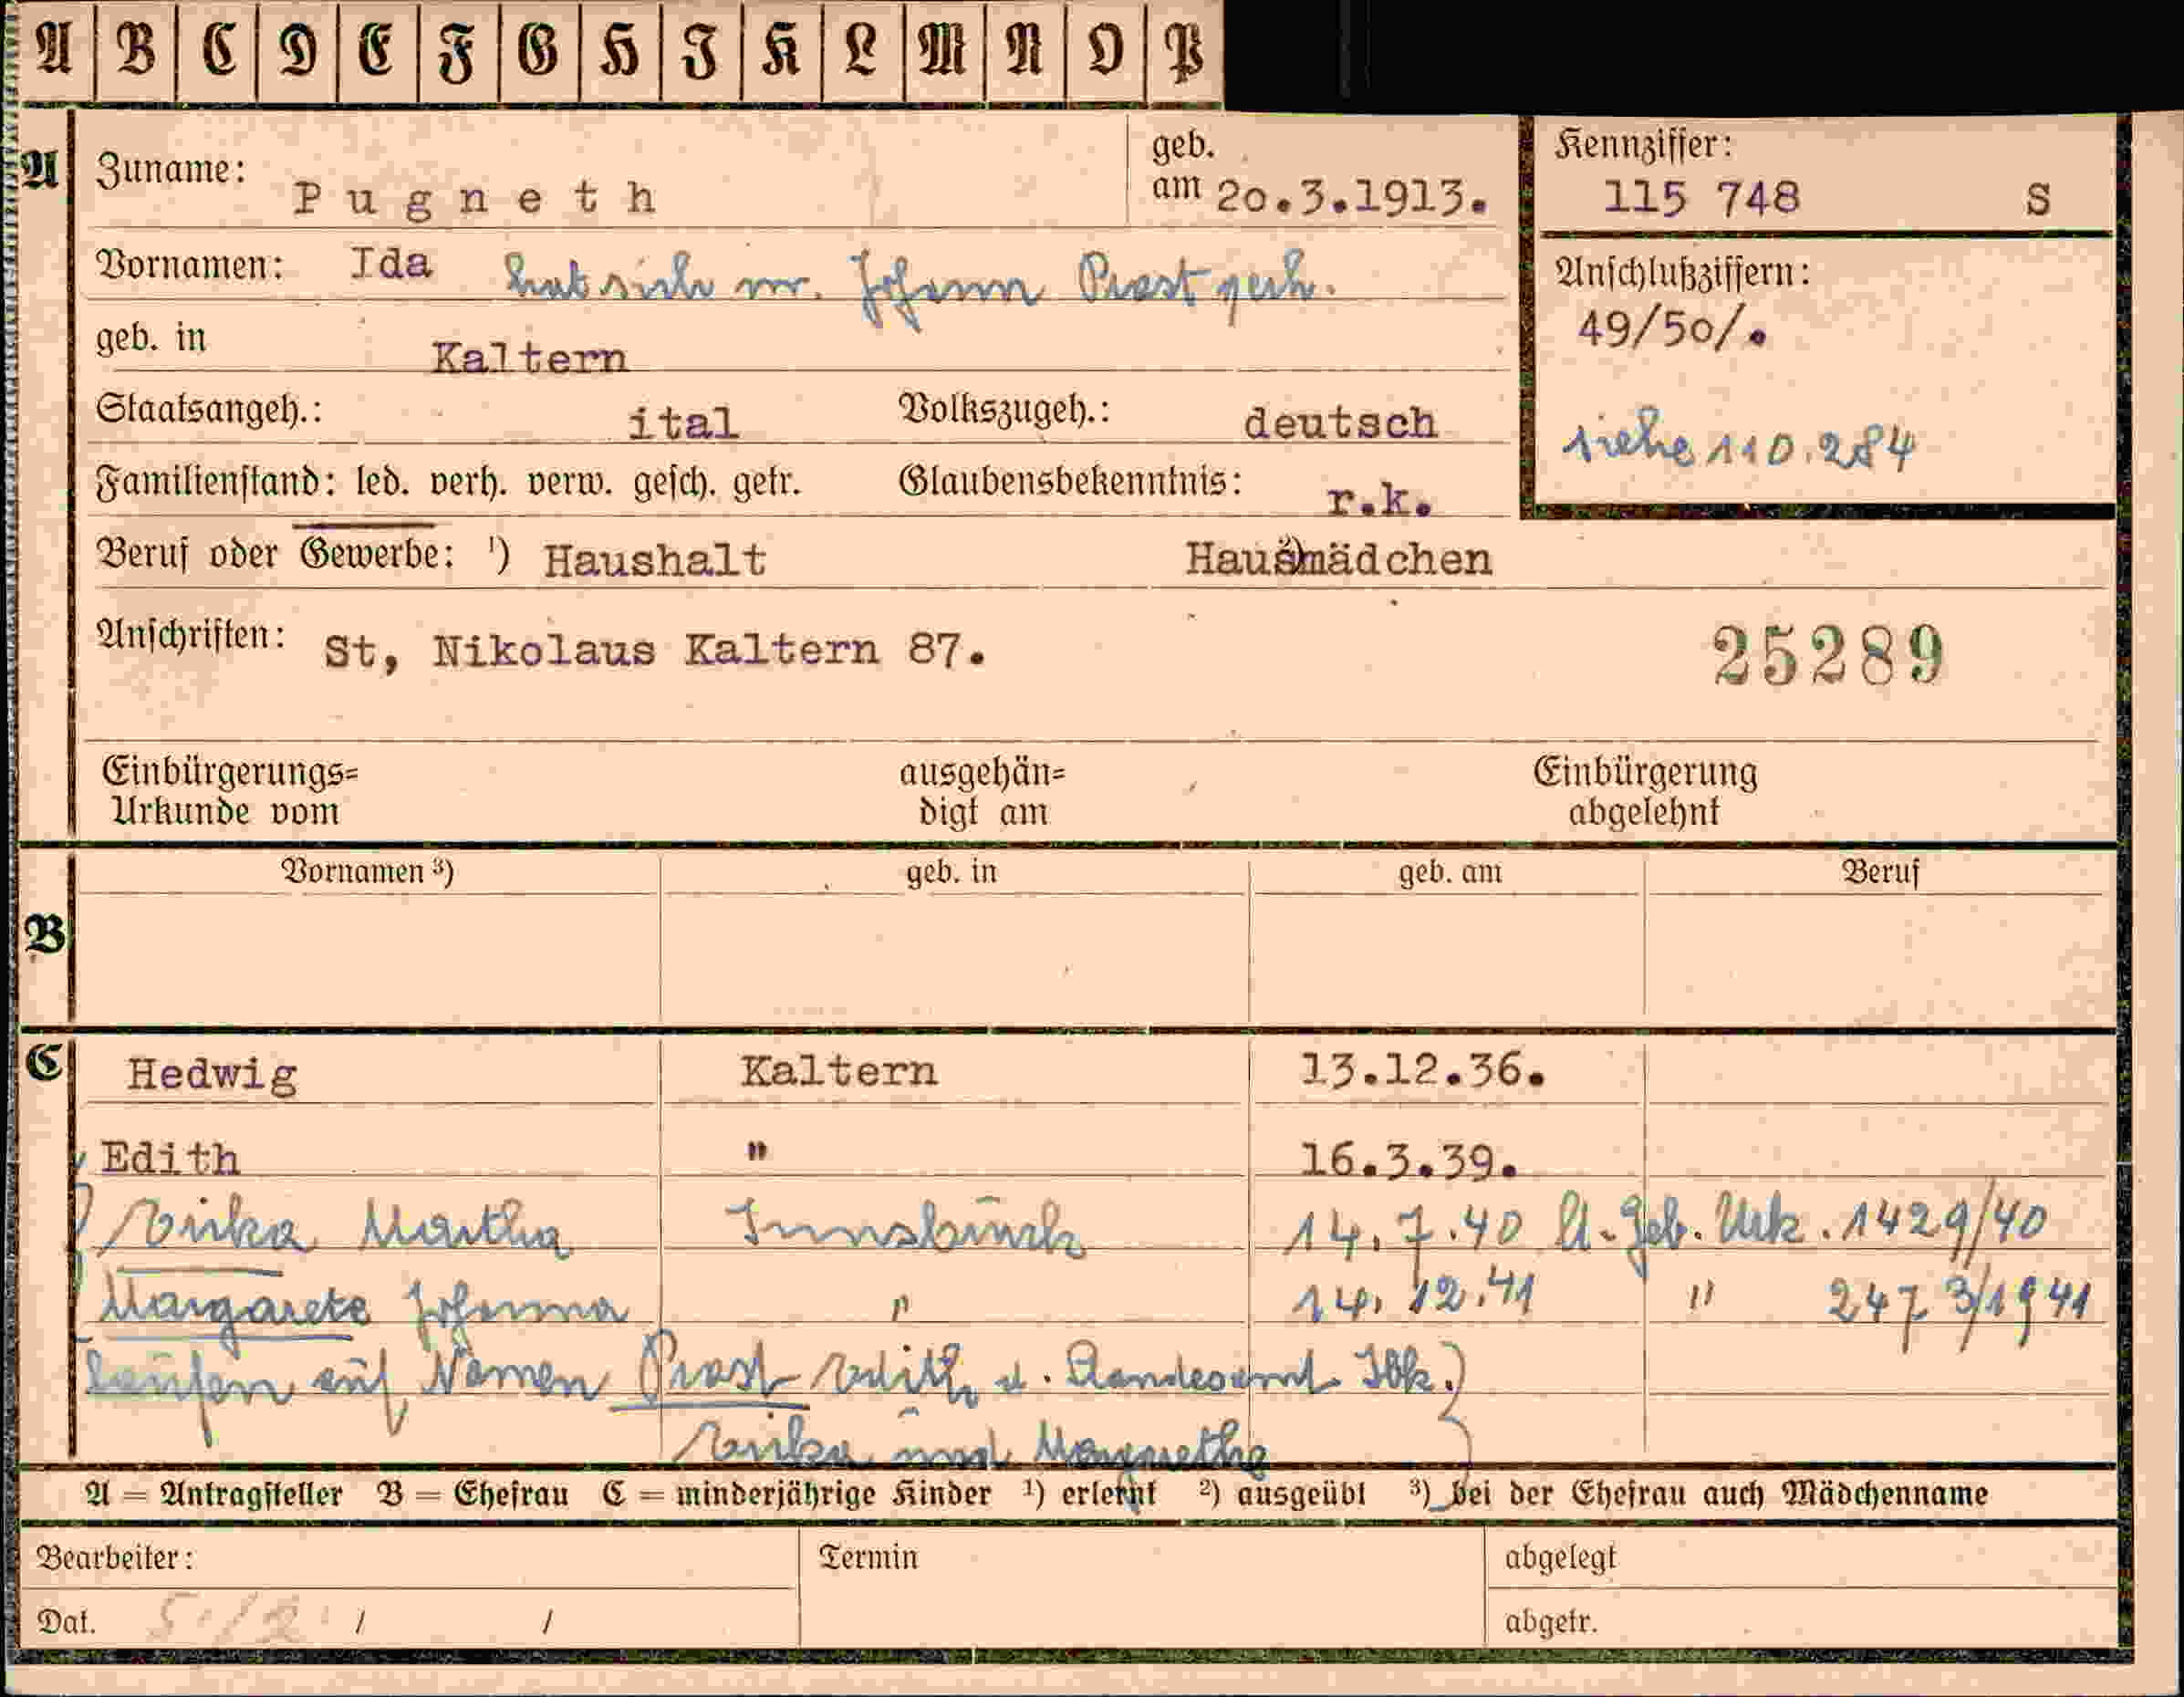 A B C D E F G H I K L M N O P
A Zuname: Pugneth geb. am 20.3.1913. Kennziffer: 115 748 S
Vornamen: Ida hat sich m. Johann Prast gesch.
Anschlußziffern: 49/50/.
geb. in Kaltern
Staatsangeh.: ital Volkszugeh.: deutsch
siehe 110.284
Familienstand: led. verh. verw. gesch. getr. Glaubensbekenntnis: r.k.
Beruf oder Gewerbe: ¹) Haushalt ²) Hausmädchen
Anschriften: St, Nikolaus Kaltern 87. 25289
Einbürgerungs= ausgehän= Einbürgerung
Urkunde vom digt am abgelehnt
Vornamen ³) geb. in geb. am Beruf
B
C Hedwig Kaltern 13.12.36.
Edith " 16.3.39.
Erika Martha Innsbruck 14.7.40 lt. Geb. Urk. 1429/40
Margarete Johanna " 14.12.41 " 2473/1941
laufen auf Namen Prast Edith d. Standesamt Ibk.)
Erika und Margarethe
A = Antragsteller B = Ehefrau C = minderjährige Kinder ¹) erlernt ²) ausgeübt ³) bei der Ehefrau auch Mädchenname
Bearbeiter: Termin abgelegt
Dat. / / abgetr.